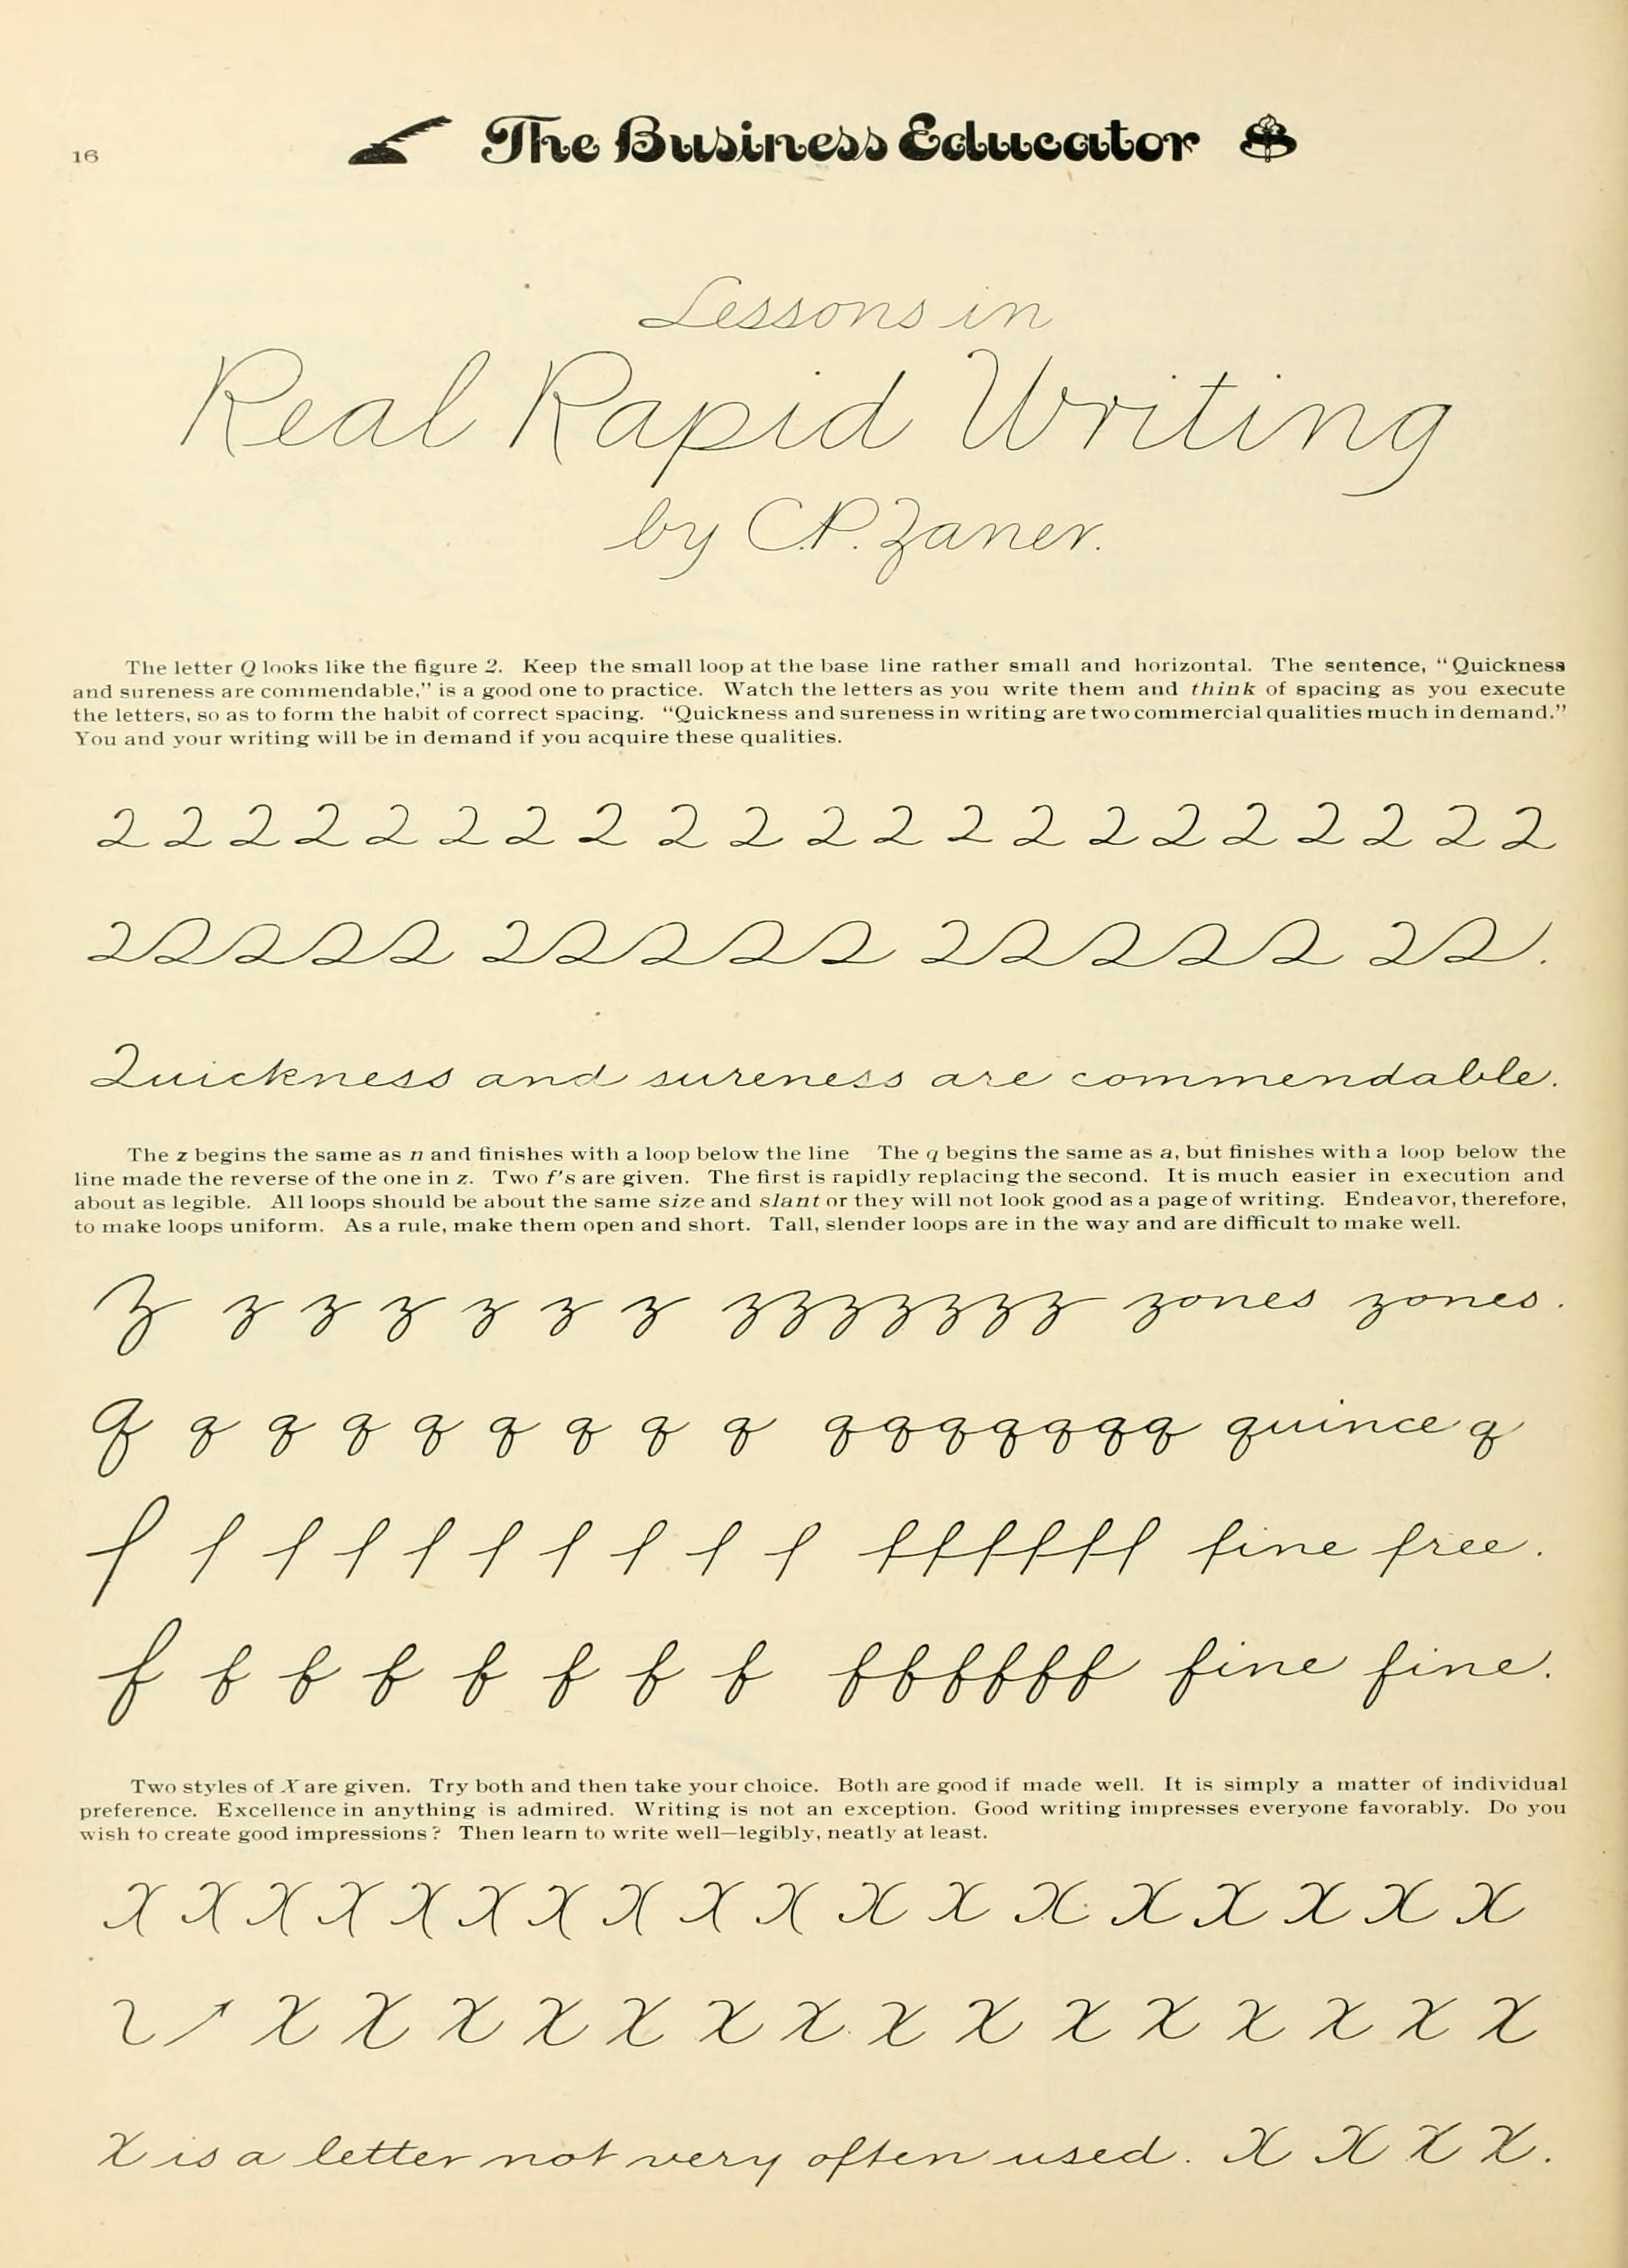 16
The Business Educator
Lessons in
Real Rapid Writing
by C.P. Zaner.
The letter Q looks like the figure 2. Keep the small loop at the base line rather small and horizontal. The sentence, "Quickness
and sureness are commendable," is a good one to practice. Watch the letters as you write them and think of spacing as you execute
the letters, so as to form the habit of correct spacing. "Quickness and sureness in writing are two commercial qualities much in demand."
You and your writing will be in demand if you acquire these qualities.
Q Q Q Q Q Q Q Q Q Q Q Q Q Q Q Q Q Q Q Q Q
QQQQQ QQQQQ QQQQQ QQ.
Quickness and sureness are commendable.
The z begins the same as n and finishes with a loop below the line The q begins the same as a, but finishes with a loop below the
line made the reverse of the one in z. Two f's are given. The first is rapidly replacing the second. It is much easier in execution and
about as legible. All loops should be about the same size and slant or they will not look good as a page of writing. Endeavor, therefore,
to make loops uniform. As a rule, make them open and short. Tall, slender loops are in the way and are difficult to make well.
z z z z z z z zzzzzzz zones zones.
q q q q q q q q q qqqqqqq quince q
f f f f f f f f f f ffffff fine free.
f f f f f f f f ffffff fine fine.
Two styles of X are given. Try both and then take your choice. Both are good if made well. It is simply a matter of individual
preference. Excellence in anything is admired. Writing is not an exception. Good writing impresses everyone favorably. Do you
wish to create good impressions? Then learn to write well—legibly, neatly at least.
X X X X X X X X X X X X X X X X X X
X X X X X X X X X X X X X X X
X is a letter not very often used. X X X X.